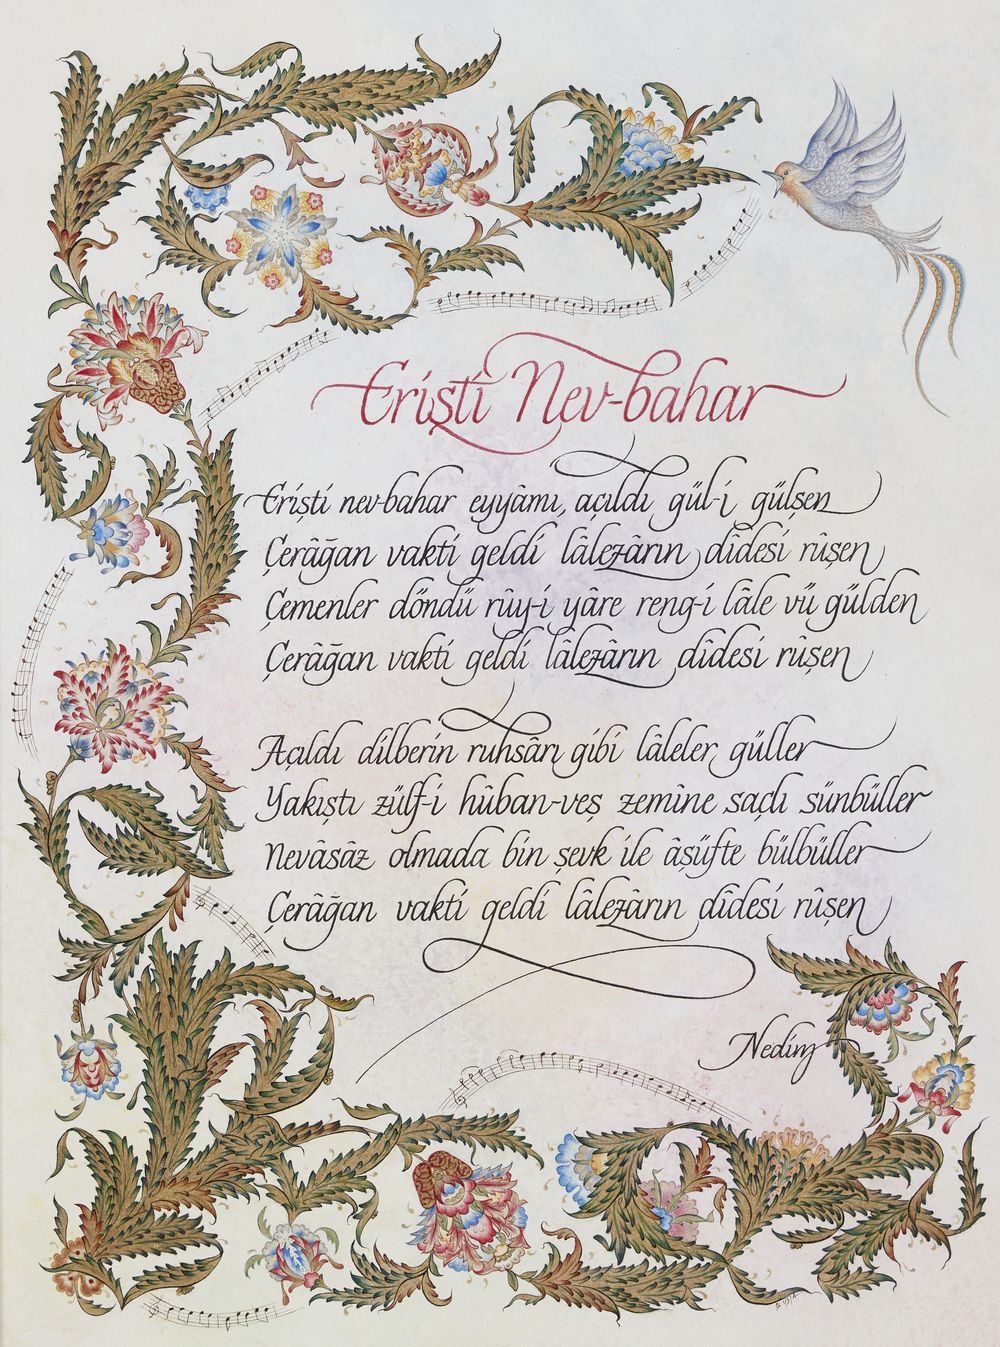 Erişti Nev-bahar
Erişti nev-bahar eyyâmı, açıldı gül-i gülşen
Çerâğan vakti geldi lâlezârın dîdesi rûşen
Çemenler döndü rûy-i yâre reng-i lâle vü gülden
Çerâğan vakti geldi lâlezârın dîdesi rûşen
Açıldı dilberin ruhsârı gibi lâleler, güller
Yakıştı zülf-i hûban-veş zemîne saçlı sünbüller
Nevâsâz olmada bin şevk ile âşüfte bülbüller
Çerâğan vakti geldi lâlezârın dîdesi rûşen
Nedim